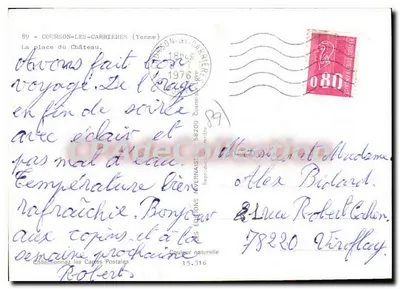 89 - COURSON-LES-CARRIERES (Yonne)
La place du Château.
Avons fait bon
voyage. De l'orage
en fin de soirée
avec éclair et
pas mal d'eau.
Température bien
rafraîchie. Bonjour
aux copins et à la
semaine prochaine
Robert
Collectionnez les Cartes Postales
Couleur naturelle
15.316
1976
0,80
89)
Monsieur et Madame
Alex Bidard.
21 rue Robert Cahen
78220 Viroflay.